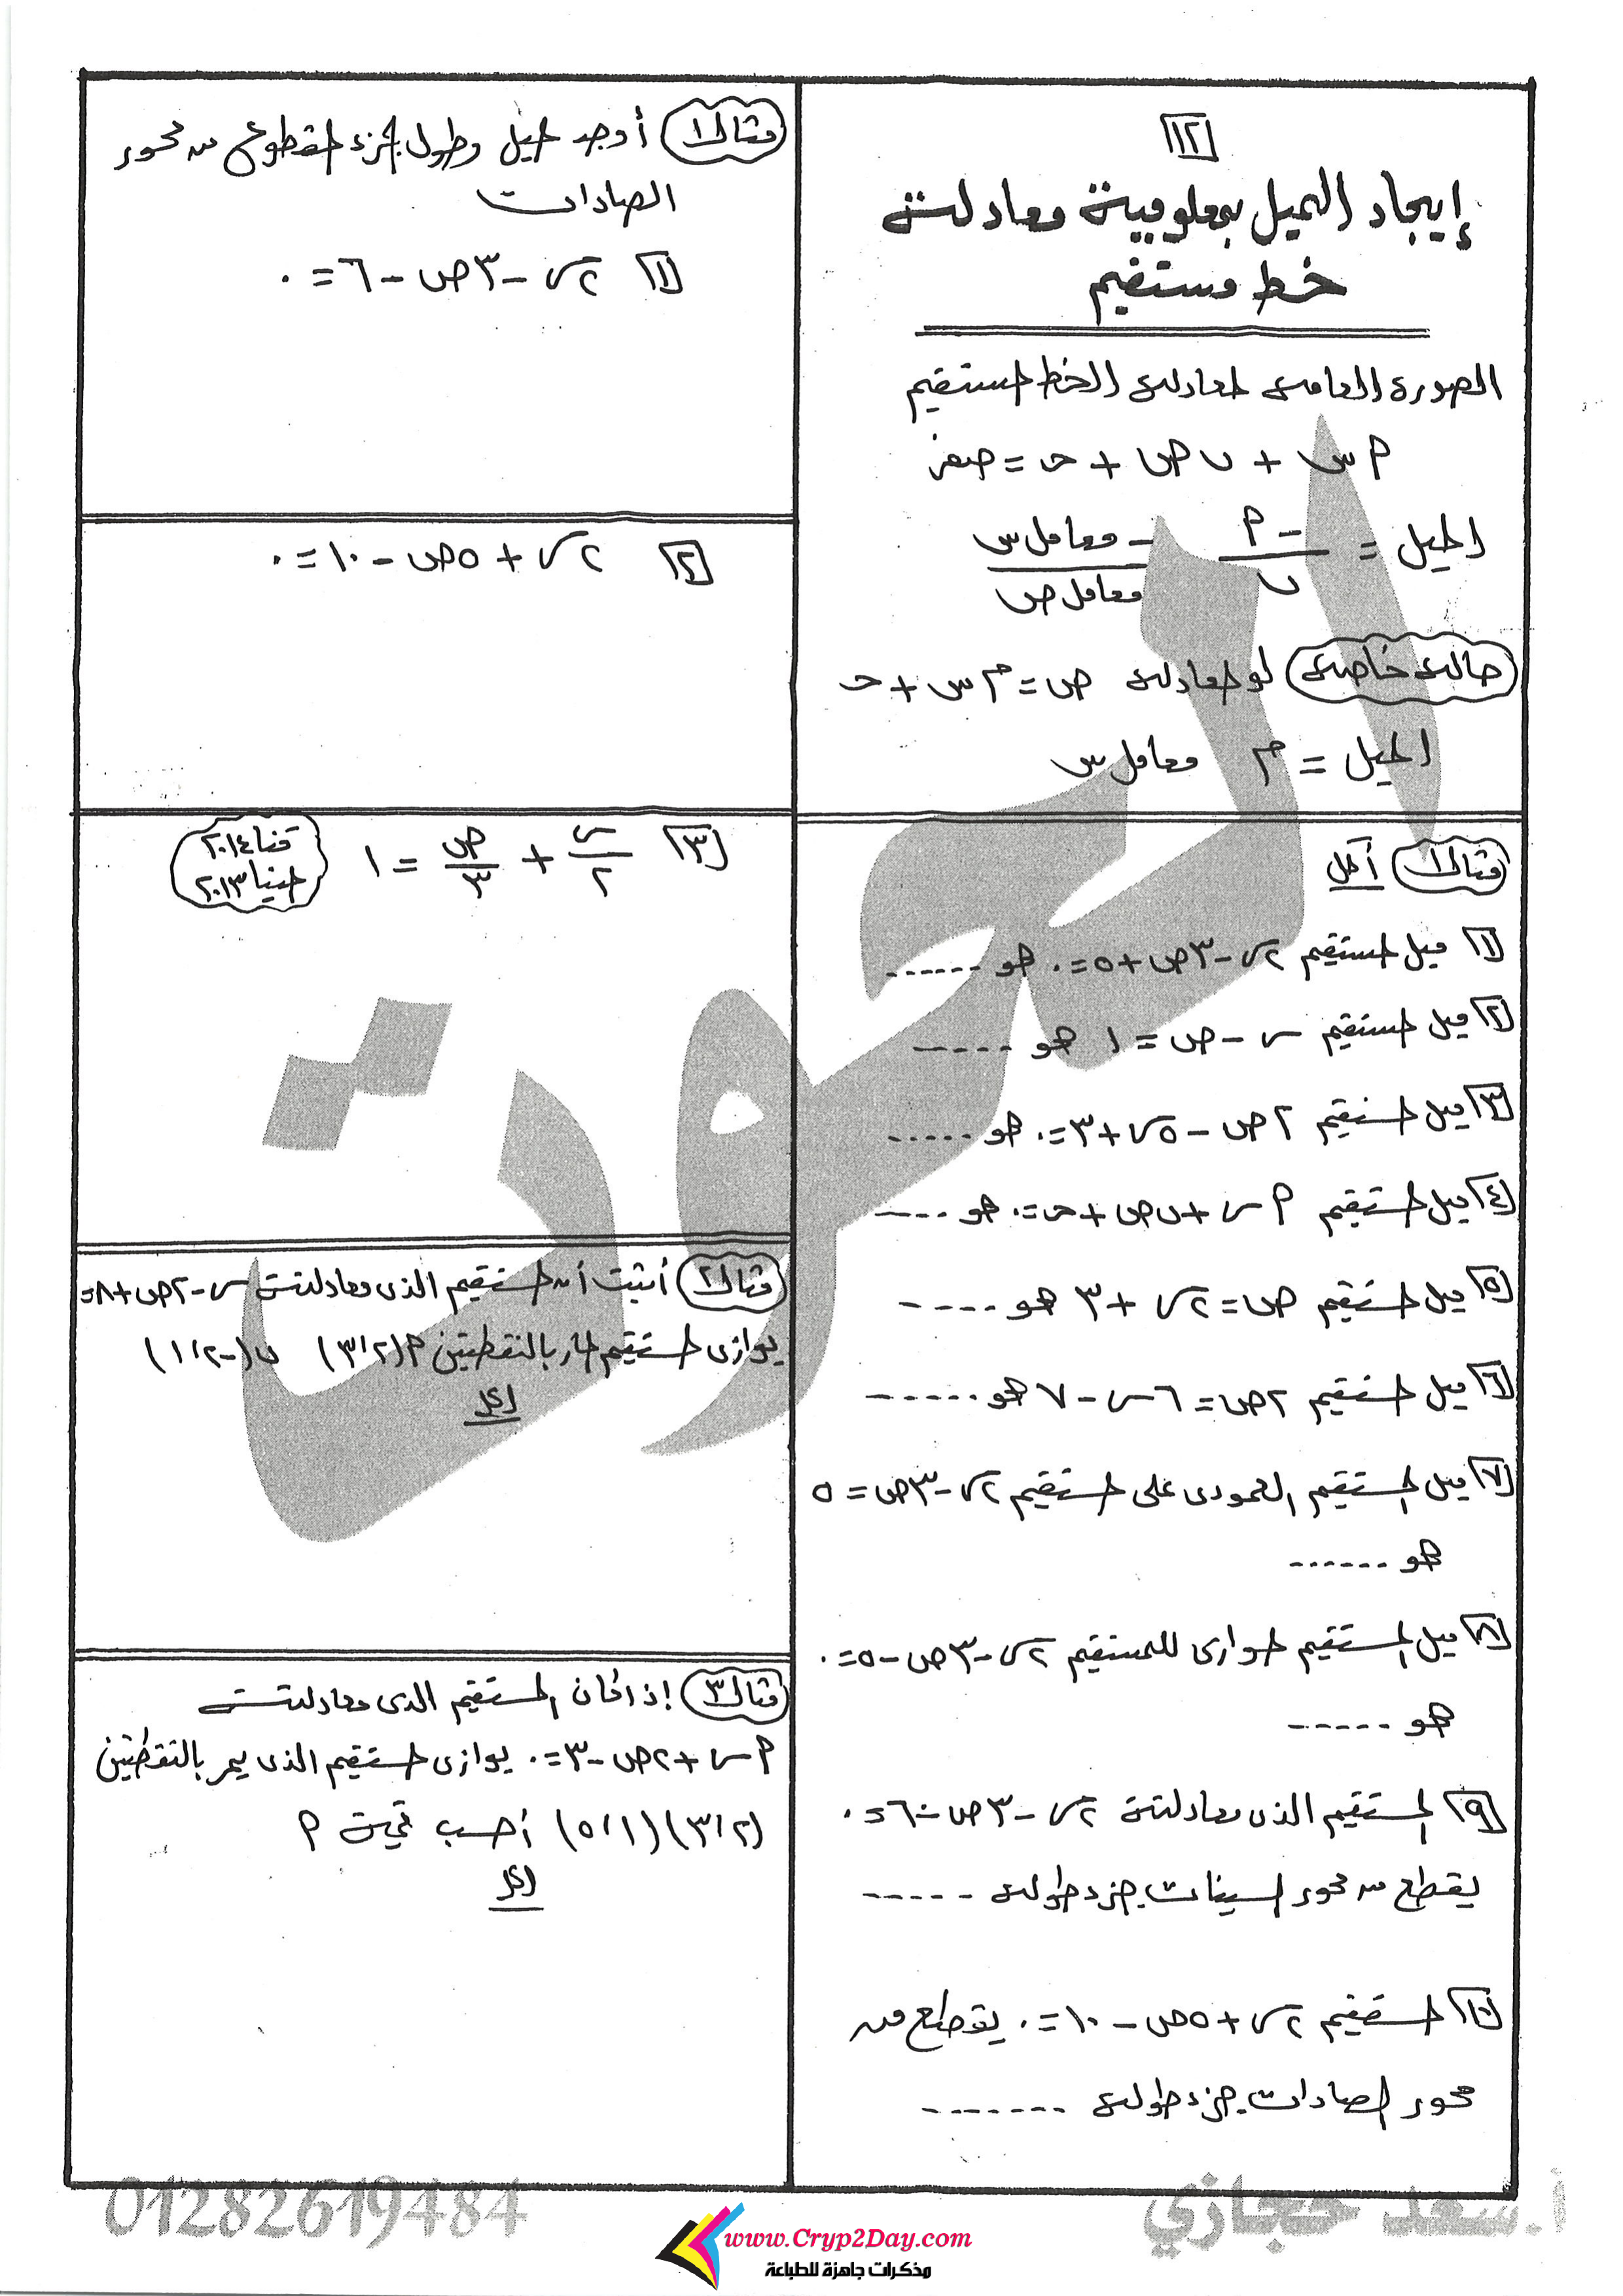 ١٢
إيجاد الميل بمعلومية معادلة
خط مستقيم
الصورة العامة لمعادلة الخط المستقيم
أ س + ب ص + حـ = صفر
الميل = -أ / ب  -معامل س / معامل ص
حالة خاصة لو المعادلة ص = م س + حـ
الميل = م معامل س
مثال ١ أكمل
١ ميل المستقيم ٢س - ٣ص + ٥ = ٠ هو ......
٢ ميل المستقيم س - ص = ١ هو .....
٣ ميل المستقيم ٢ص - ٥س + ٣ = ٠ هو .....
٤ ميل المستقيم أس + ب ص + حـ = ٠ هو ....
٥ ميل المستقيم ص = ٢س + ٣ هو .....
٦ ميل المستقيم ٢ص = ٦س - ٧ هو ......
٧ ميل المستقيم العمودى على المستقيم ٢س - ٣ص = ٥
هو ......
٨ ميل المستقيم الموازى للمستقيم ٢س - ٣ص - ٥ = ٠
هو .....
٩ المستقيم الذى معادلته ٢س - ٣ص - ٦ = ٠
يقطع من محور السينات جزء طوله .....
١٠ المستقيم ٢س + ٥ص - ١٠ = ٠ يقطع من
محور الصادات جزء طوله .......
مثال ١ أوجد الميل وطول الجزء المقطوع من محور
الصادات
١ ٢س - ٣ص - ٦ = ٠
٢ ٢س + ٥ص - ١٠ = ٠
٣ س/٢ + ص/٣ = ١ قنا ٢٠١٤
المنيا ٢٠١٣
مثال ٢ أثبت أن المستقيم الذى معادلته س - ٢ص + ٨ =
يوازى المستقيم المار بالنقطتين أ (٢، ٣) ب (-٢، ١)
الحل
مثال ٣ إذا كان المستقيم الذى معادلته
أس + ٢ص - ٣ = ٠ يوازى المستقيم الذى يمر بالنقطتين
(٢، ٣) (١، ٥) أحسب قيمة أ
الحل
أ.سعد حجازي
01282619484
www.Cryp2Day.com
مذكرات جاهزة للطباعة